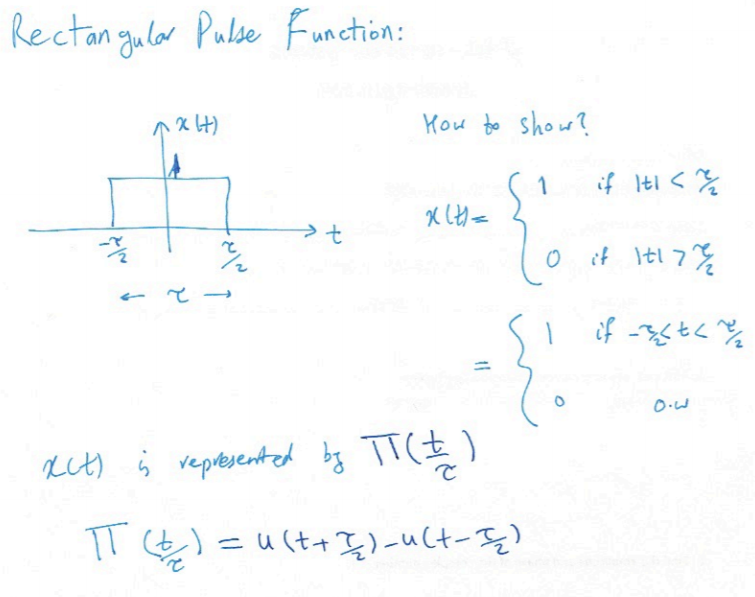 Rectangular Pulse Function:
x(t)
How to show?
1
x(t) = { 1 if |t| < τ/2
0 if |t| > τ/2
-τ/2 τ/2 t
← τ →
= { 1 if -τ/2 < t < τ/2
0 o.w
x(t) is represented by Π(t/τ)
Π(t/τ) = u(t+τ/2) - u(t-τ/2)